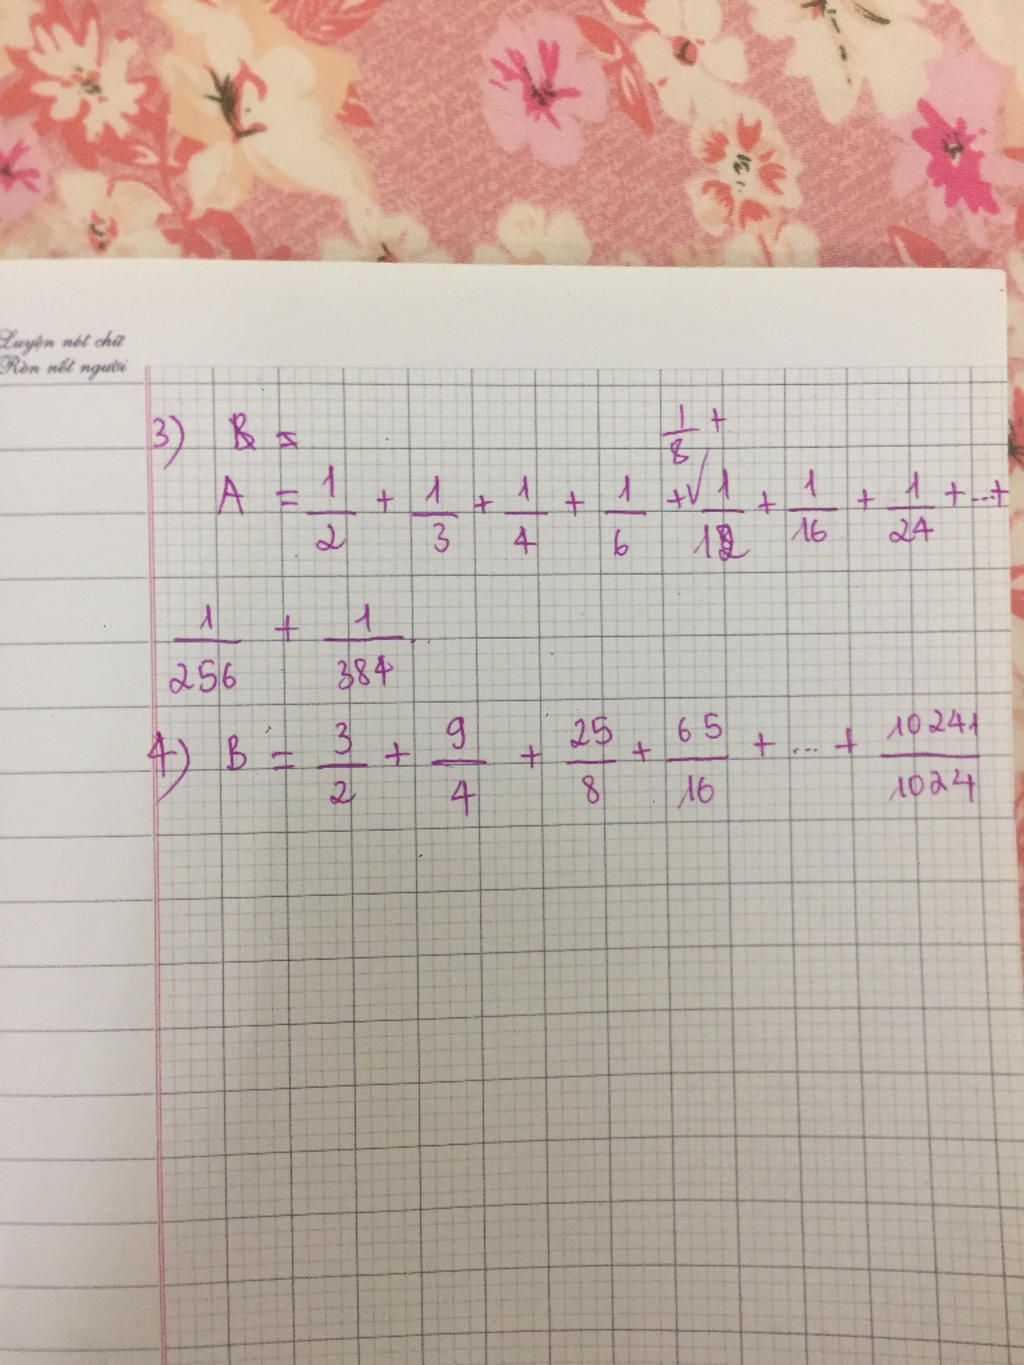 Luyện nét chữ
Rèn nết người
3) B =
1/8 +
A = 1/2 + 1/3 + 1/4 + 1/6 + √ 1/12 + 1/16 + 1/24 + ... +
1/256 + 1/384
4) B = 3/2 + 9/4 + 25/8 + 65/16 + ... + 10241/1024